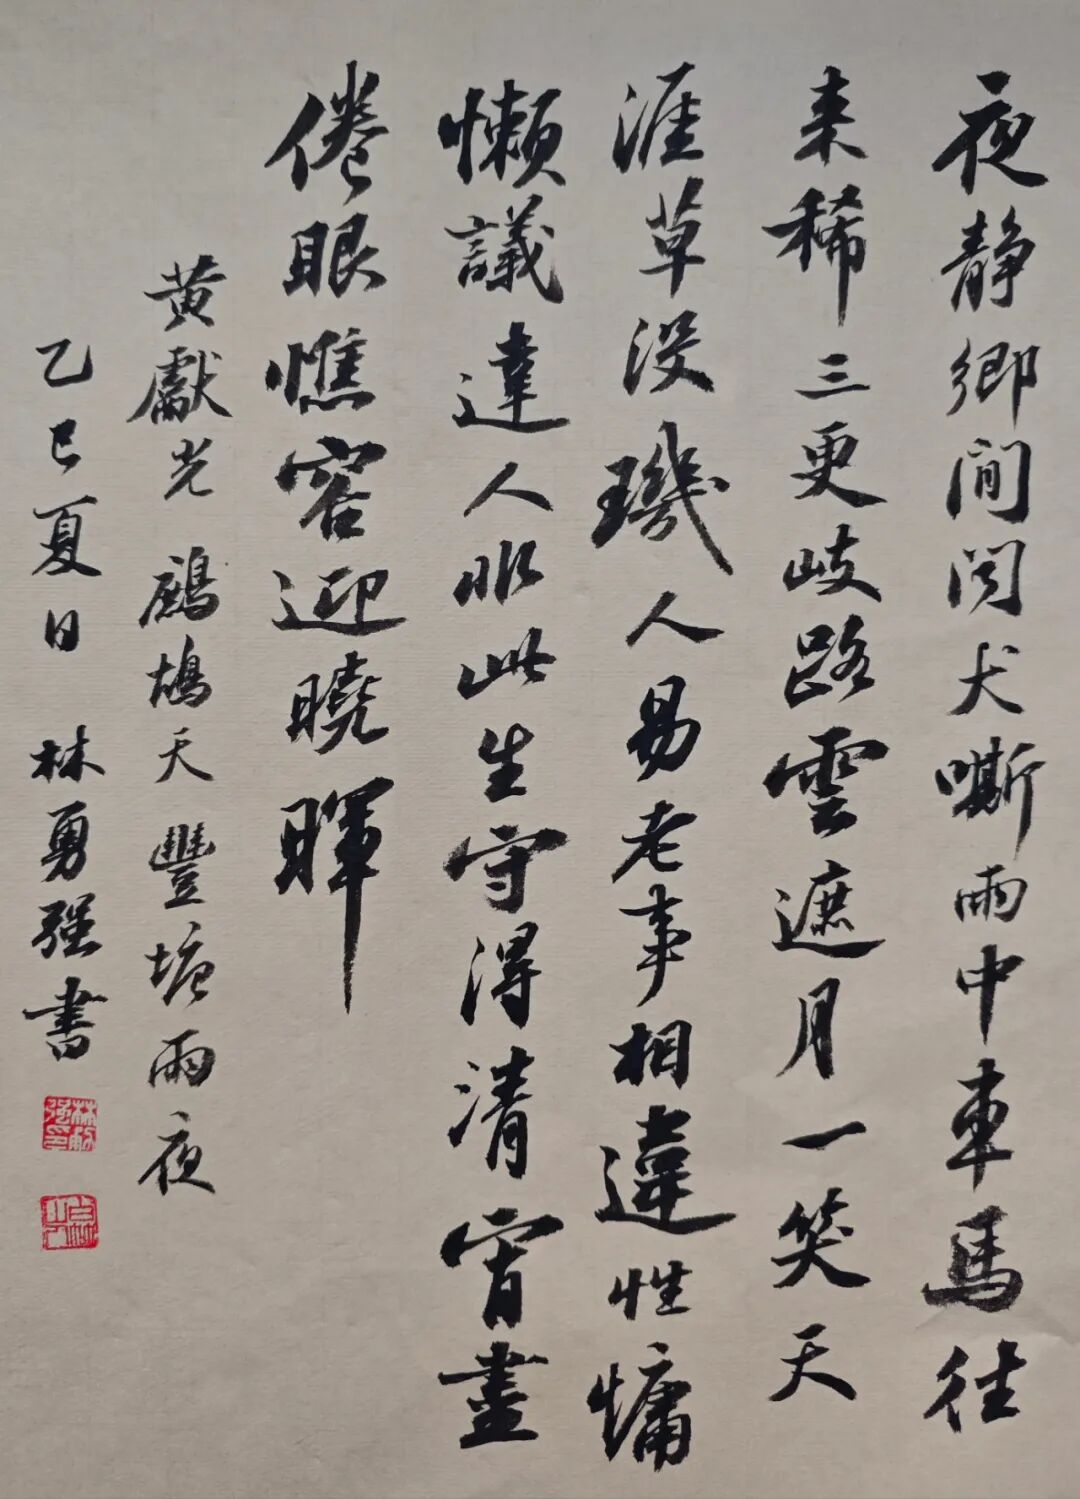 夜静鄉間闻犬嘶雨中車馬往
来稀三更岐路雲遮月一笑天
涯草没璣人易老事相違性慵
懶議達人非此生守得清宵盡
倦眼憔容迎曉暉
黄獻光 鷓鴣天 豐塘雨夜
乙巳夏日 林勇强書
林勇强印